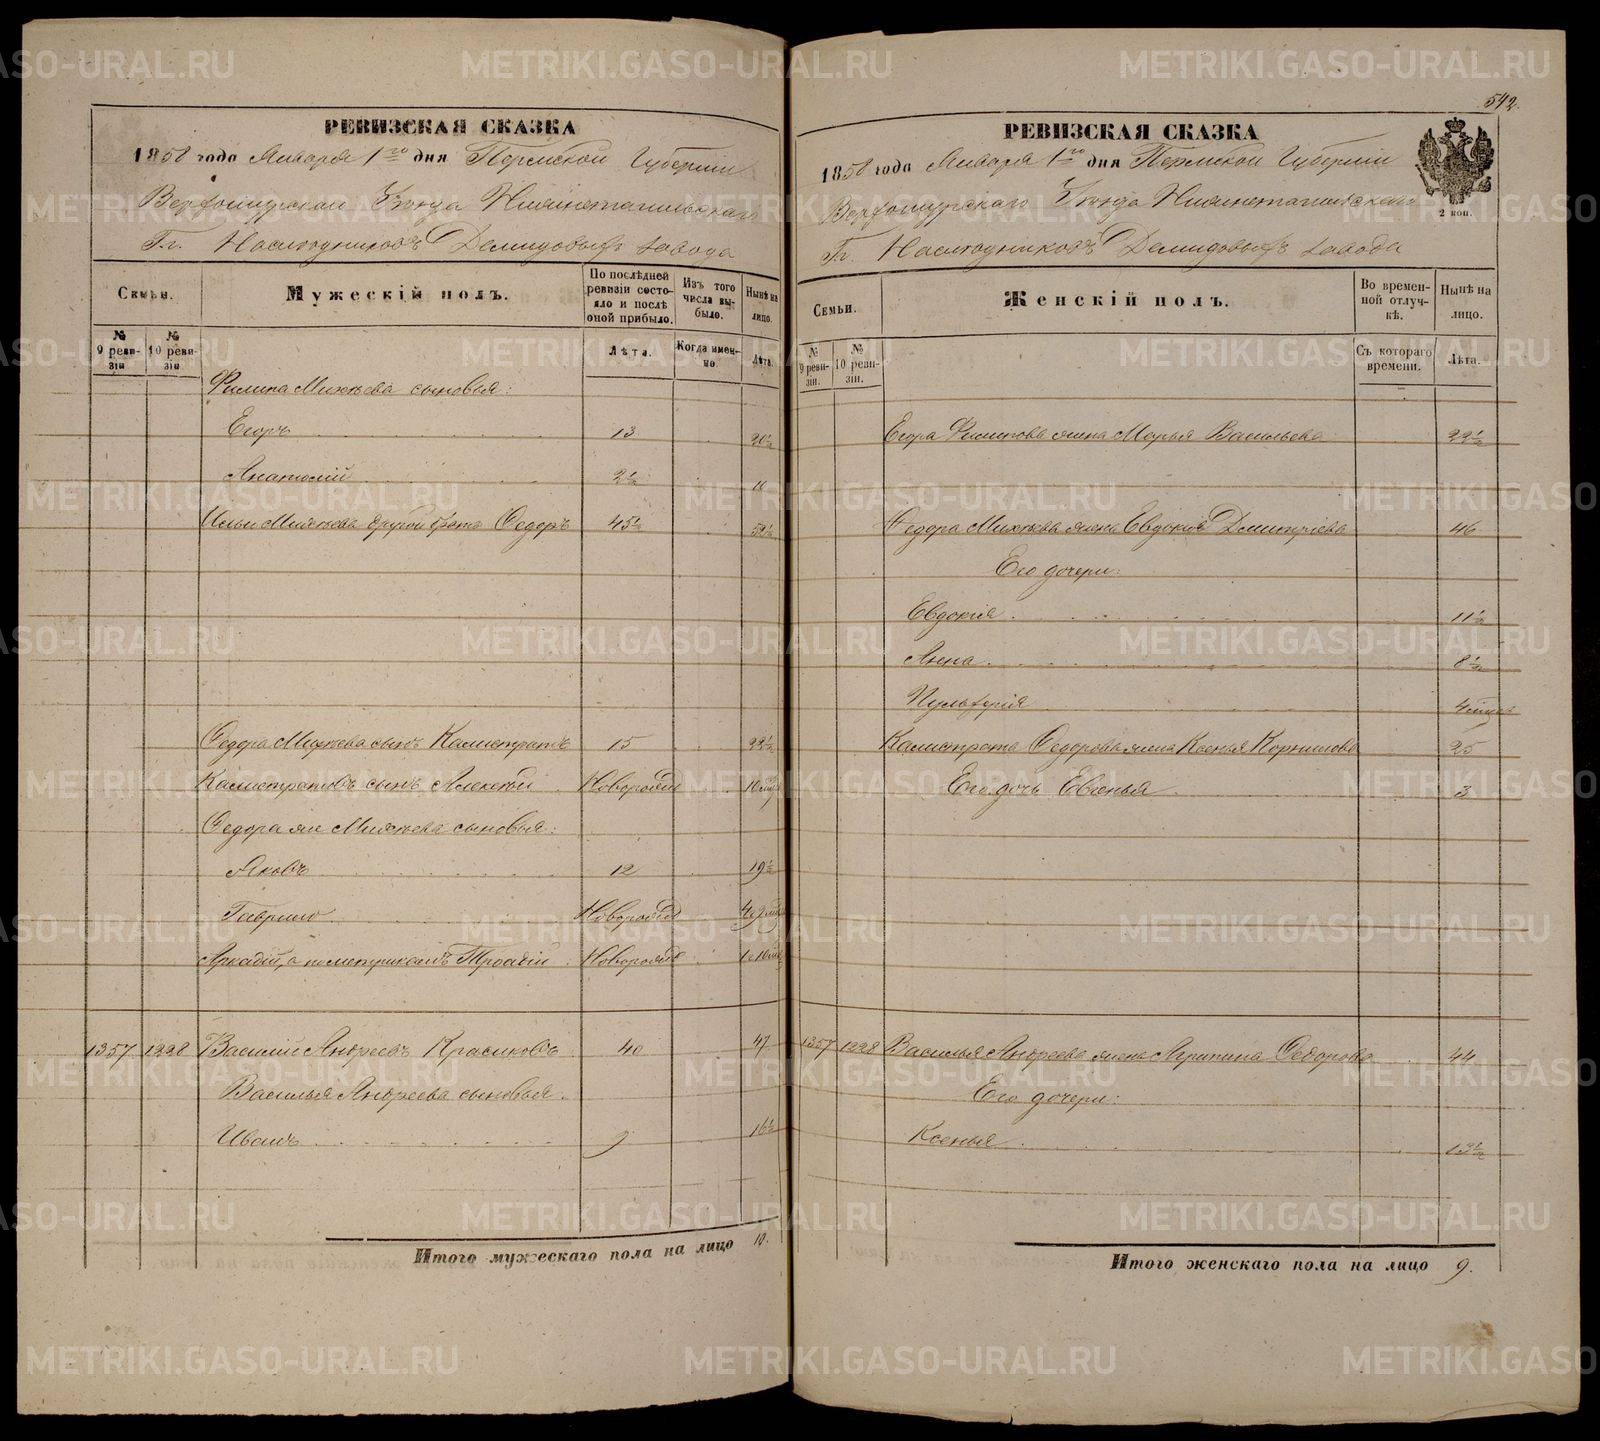 542.
РЕВИЗСКАЯ СКАЗКА
1858 года Января 1го дня Пермской Губерніи
Верхотурскаго Уѣзда Нижнетагильскаго
Гг. Наслѣдниковъ Демидовыхъ завода
Семьи.
Мужескій полъ.
По послѣдней ревизіи состояло и послѣ оной прибыло.
Изъ того числа выбыло.
Нынѣ на лицо.
№ 9 ревизіи
№ 10 ревизіи
Лѣта.
Когда именно.
Лѣта.
Филипа Михѣева сыновья:
Егоръ 13 20½
Анатолій 2½ 11
Ильи Михѣева другой брата Ѳедоръ 45½ 52½
Ѳедора Михѣева сынъ Калистратъ 15 22½
Калистратовъ сынъ Алексѣй Новорожд
Ѳедора же Михѣева сыновья:
Яковъ 12 19½
Гаврило Новорожд
Аркадій, а по метрикамъ Новорожд
1357 1228 Василій Андреевъ Красиковъ 40 47
Василья Андреева сыновья.
Иванъ 9 16½
Итого мужескаго пола на лицо 10.
РЕВИЗСКАЯ СКАЗКА
1858 года Января 1го дня Пермской Губерніи
Верхотурскаго Уѣзда Нижнетагильскаго
Гг. Наслѣдниковъ Демидовыхъ завода
2 коп.
Семьи.
Женскій полъ.
Во временной отлучкѣ.
Нынѣ на лицо.
№ 9 ревизіи.
№ 10 ревизіи.
Съ котораго времени.
Лѣта.
Егора Филипова жена Марья Васильева 22½
Ѳедора Михѣева жена Евдокія Дмитріева 46
Его дочери:
Евдокія 11½
Анна 8½
Пульхерія
Калистрата Ѳедорова жена Ксенья Корнилова 25
Его дочь Евгенья 3
1357 1228 Василья Андреева жена Агрипина Ѳедорова 44
Его дочери:
Ксенья 13½
Итого женскаго пола на лицо 9.
METRIKI.GASO-URAL.RU